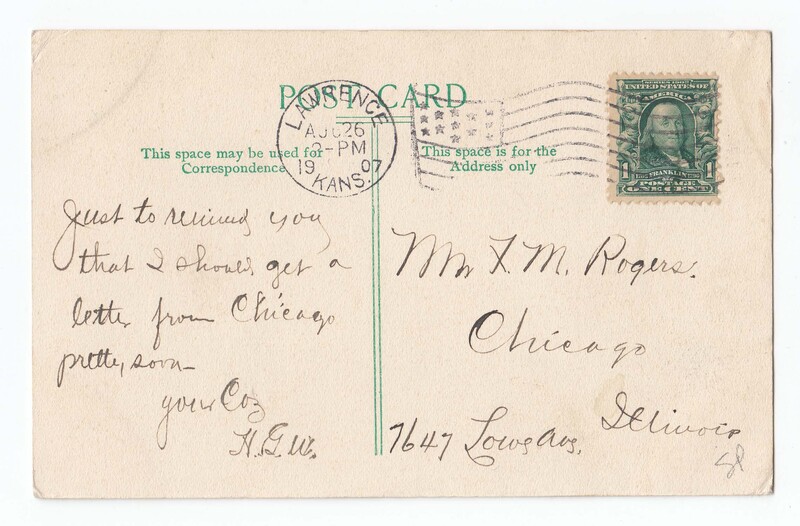 POST CARD
LAWRENCE
AUG 26
2-PM
1907
KANS.
This space may be used for
Correspondence
This space is for the
Address only
SERIES 1902
UNITED STATES OF
AMERICA
1 FRANKLIN 1
POSTAGE
ONE CENT
Just to remind you
that I should get a
letter from Chicago
pretty soon—
your Coz
H.G.W.
Mr F. M. Rogers.
Chicago
Illinois
7647 Lowe Ave.